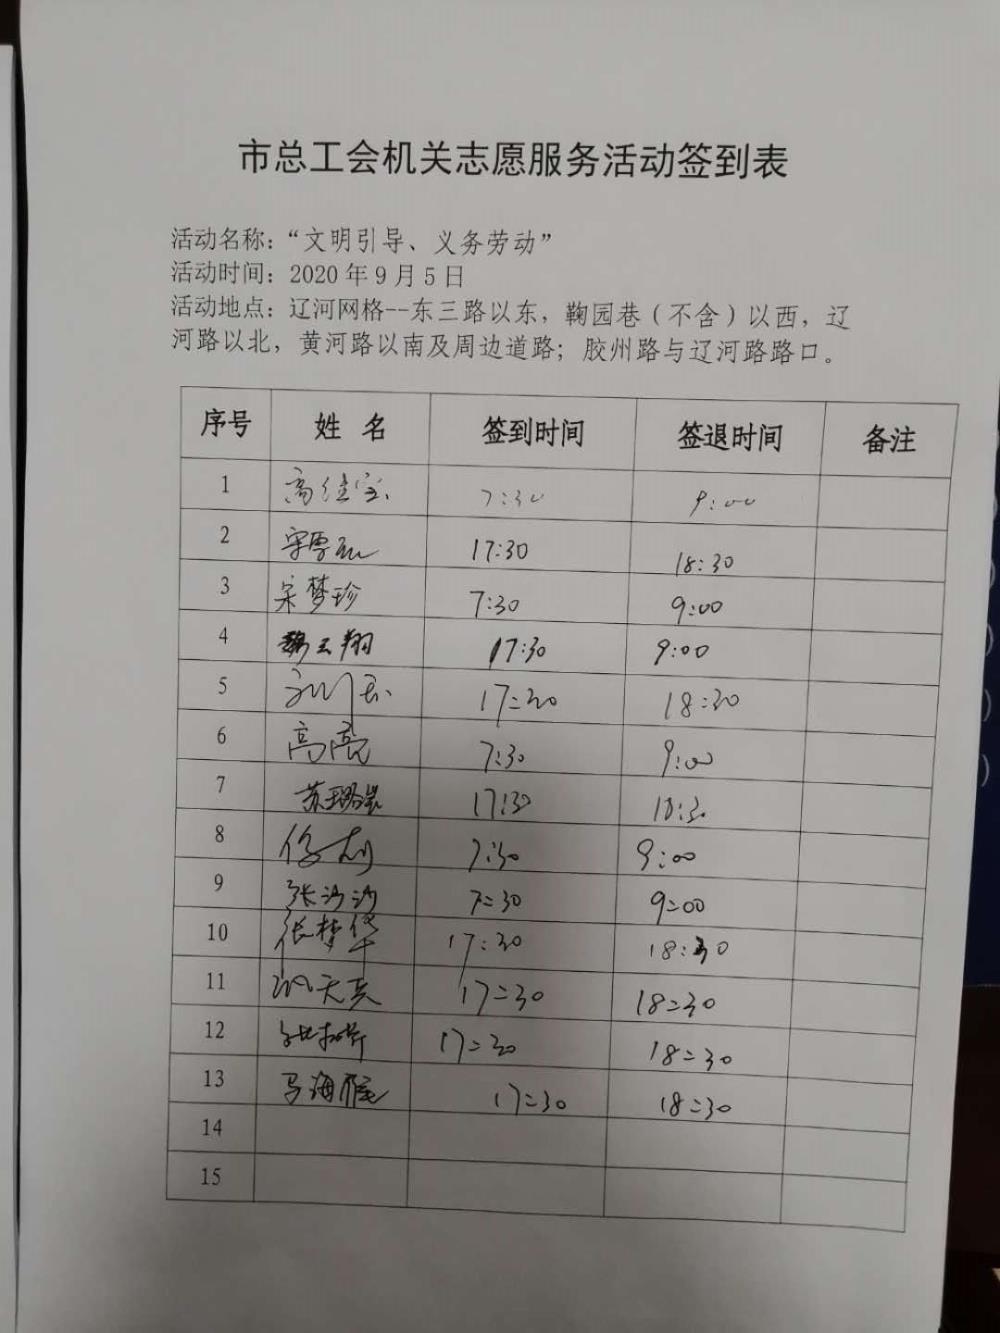 市总工会机关志愿服务活动签到表
活动名称：“文明引导、义务劳动”
活动时间：2020年9月5日
活动地点：辽河网格--东三路以东，鞠园巷（不含）以西，辽
河路以北，黄河路以南及周边道路；胶州路与辽河路路口。
序号 姓 名 签到时间 签退时间 备注
1 高佳宝 7:30 9:00
2 17:30 18:30
3 宋梦珍 7:30 9:00
4 魏云翔 17:30 9:00
5 17:30 18:30
6 高亮 7:30 9:00
7 苏璐 17:30 18:30
8 7:30 9:00
9 张沙沙 7:30 9:00
10 张梦华 17:30 18:30
11 17:30 18:30
12 17:30 18:30
13 马海雁 17:30 18:30
14
15